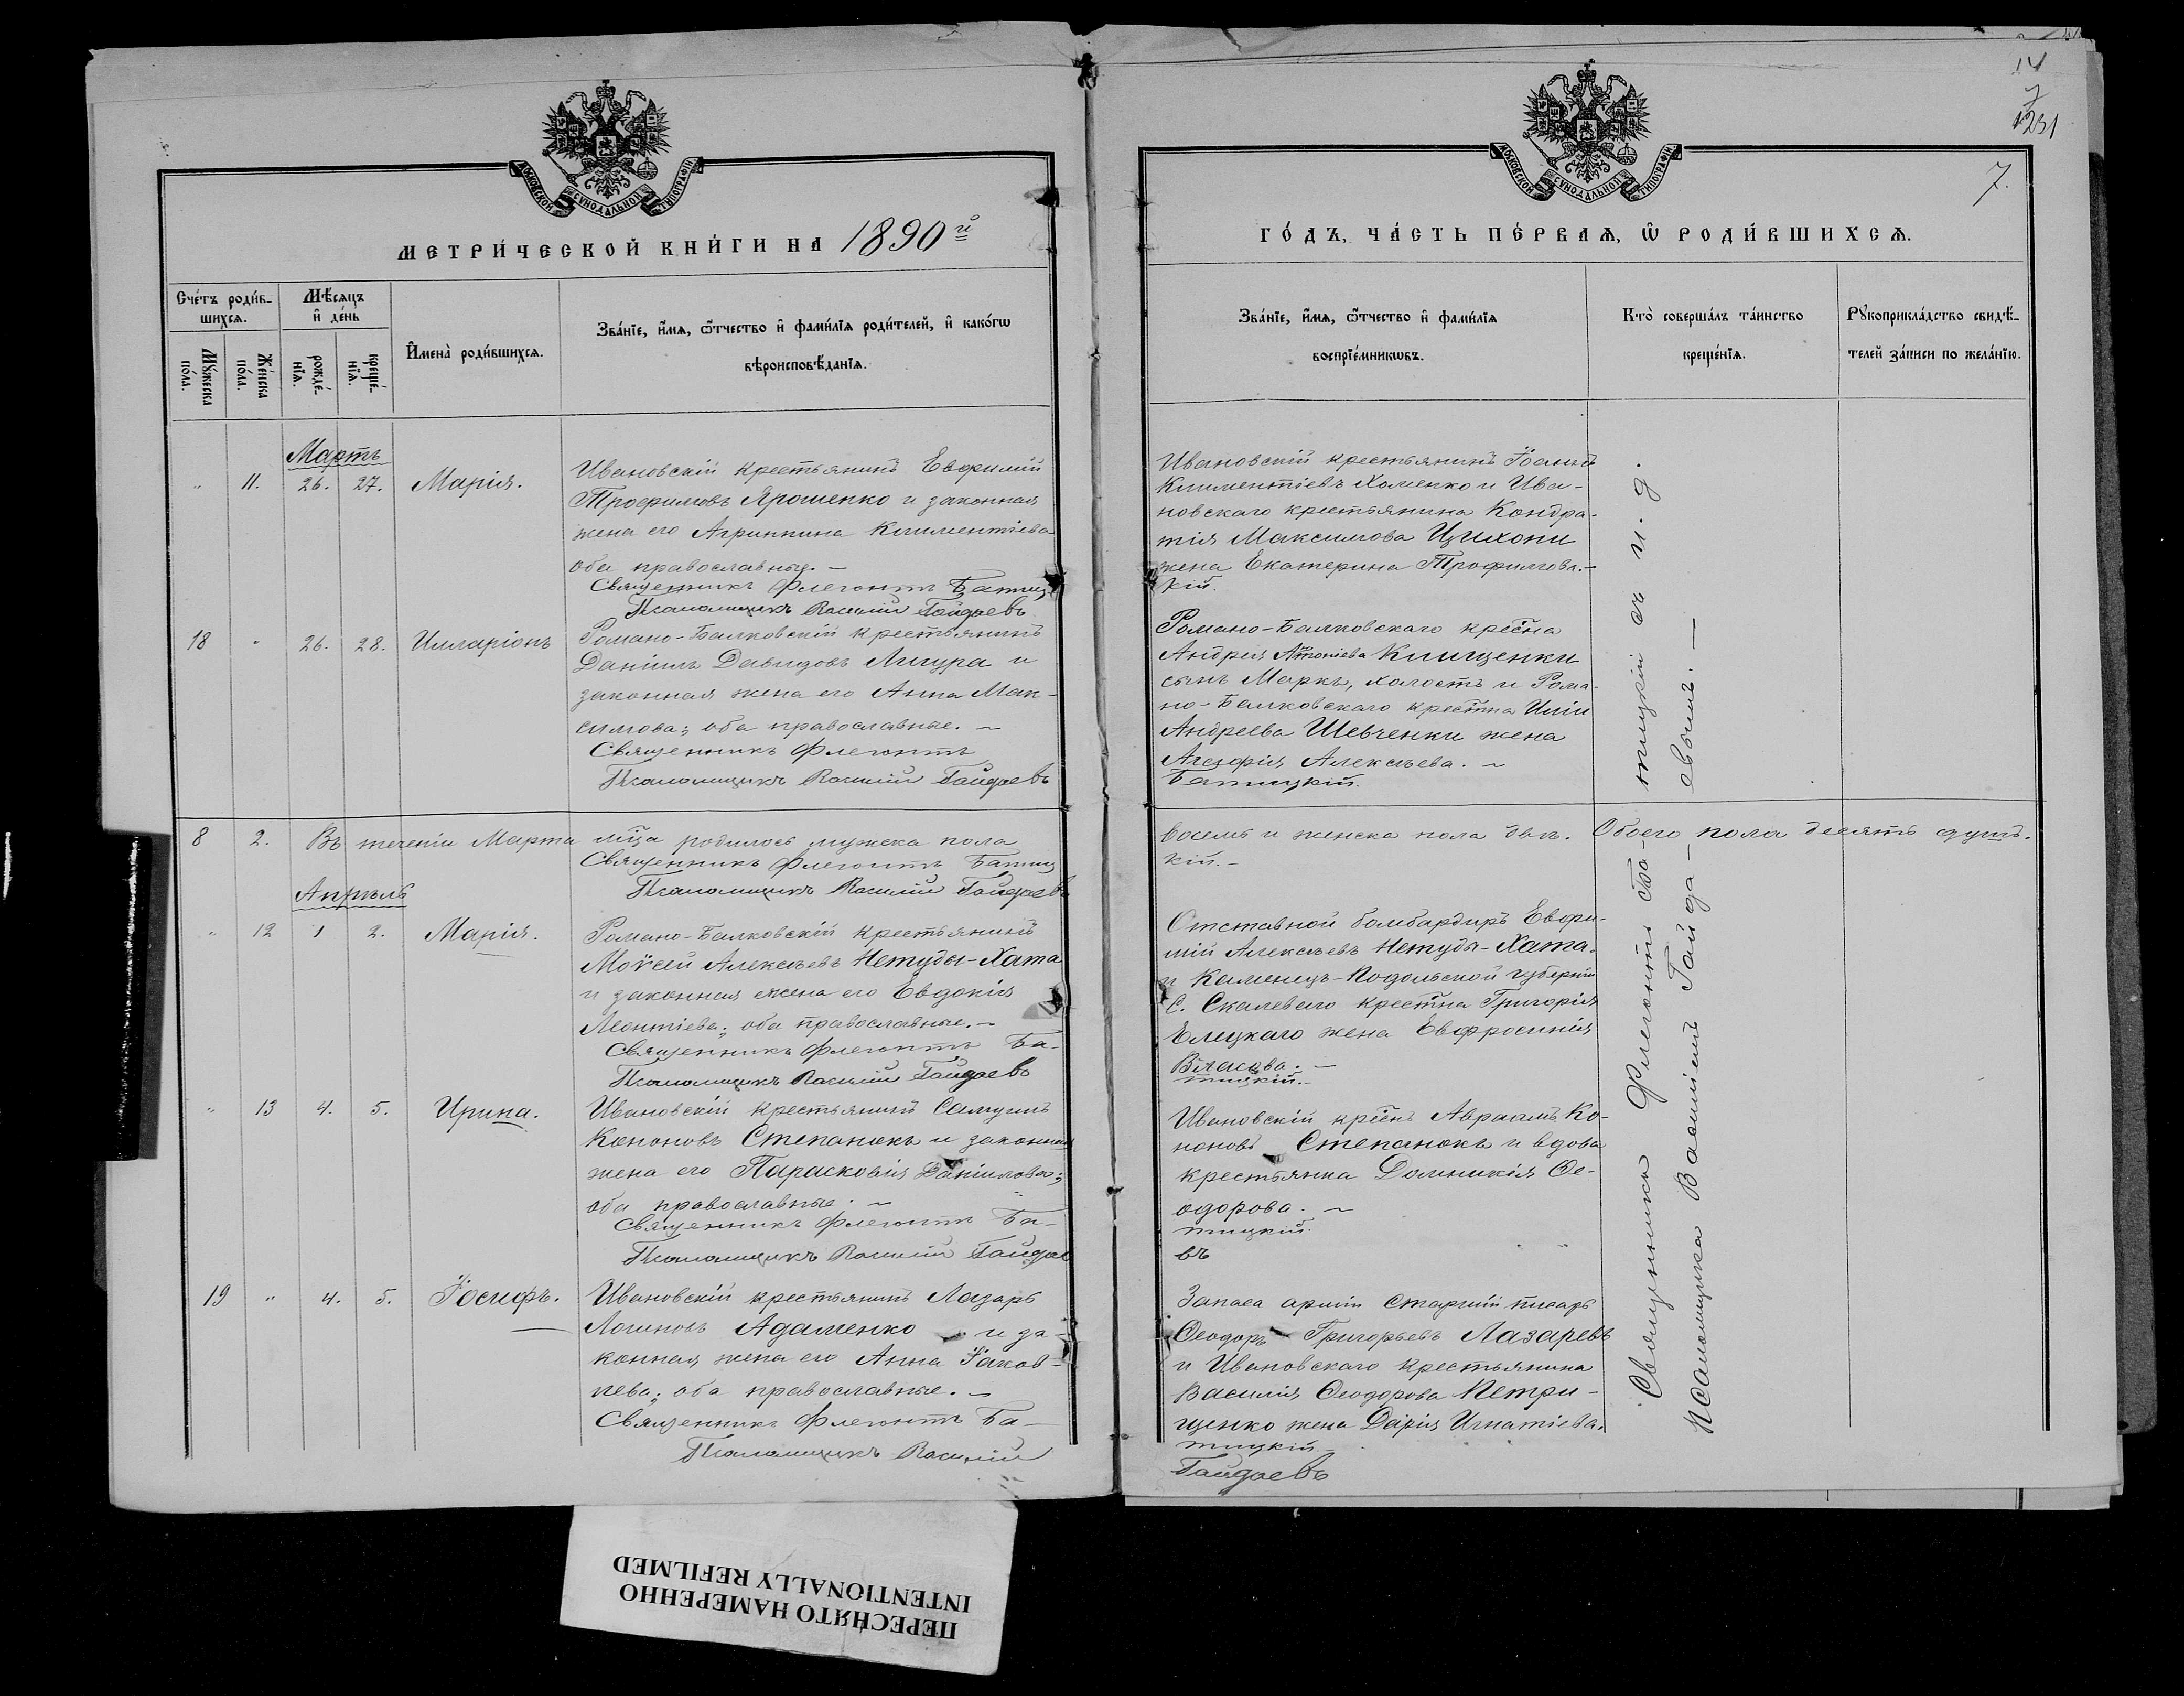 МОСКОВСКОЙ СУНОДАЛЬНОЙ ТИПОГРАФІИ
МЕТРИ́ЧЕСКОЙ КНИ́ГИ НА 1890й
Сче́тъ роди́в-
шихсѧ.
Мѣ́сѧцъ
и҆ де́нь
Мꙋ́жеска
по́ла.
Же́нска
по́ла.
рожде́-
нїѧ.
креще́-
нїѧ.
И҆мена̀ роди́вшихсѧ.
Зва́нїе, и҆́мѧ, ѻ҆́тчество и҆ фами́лїѧ роди́телей, и҆ како́гѡ
вѣроисповѣ́данїѧ.
Мартъ
" 11. 26. 27. Марія.
Ивановскій крестьянинъ Евфимій
Трофимовъ Ярошенко и законная
жена его Агрипина Климентіева
оба православные. –
Священникъ Флегонтъ Батиц
Псаломщикъ Василій Гайдаевъ
18 " 26. 28. Илларіонъ
Романо-Балковскій крестьянинъ
Даніилъ Давидовъ Лигура и
законная жена его Анна Мак-
симова; оба православные. –
Священникъ Флегонтъ
Псаломщикъ Василій Гайдаевъ
8 2. Въ теченіи Марта мѣца родилось мужска пола
Священникъ Флегонтъ Батиц
Псаломщикъ Василій Гайдаевъ
Апрѣль
" 12 1 2. Марія.
Романо-Балковскій крестьянинъ
Моѵсей Алексѣевъ Нетуды-Хата
и законная жена его Евдокія
Леонтіева; оба православные. –
Священникъ Флегонтъ Ба-
Псаломщикъ Василій Гайдаевъ
" 13 4. 5. Ирина.
Ивановскій крестьянинъ Самуилъ
Кононовъ Степанюкъ и законная
жена его Парасковія Даніилова;
оба православные. –
Священникъ Флегонтъ Ба-
Псаломщикъ Василій Гайдае
19 " 4. 5. Іосифъ.
Ивановскій крестьянинъ Лазарь
Логиновъ Адаменко и за-
конная жена его Анна Іаков-
лева; оба православные. –
Священникъ Флегонтъ Ба-
Псаломщикъ Василій
14
7
1231
7.
МОСКОВСКОЙ СУНОДАЛЬНОЙ ТИПОГРАФІИ
ГО́ДЪ, ЧА́СТЬ ПЕ́РВАѦ, Ѡ҆ РОДИ́ВШИХСѦ.
Зва́нїе, и҆́мѧ, ѻ҆́тчество и҆ фами́лїѧ
воспрїе́мникѡвъ.
Кто̀ соверша́лъ та́инство
креще́нїѧ.
Рꙋкоприкла́дство свидѣ́-
телей за́писи по жела́нїю.
Ивановскій крестьянинъ Іоаннъ
Климентіевъ Хоменко и Ива-
новскаго крестьянина Кондра-
тія Максимова Цихони
жена Екатерина Трофимова. –
кій.
Романо-Балковскаго крестна
Андрея Антоніева Клищенки
сынъ Маркъ, холостъ и Рома-
но-Балковскаго крестна Иліи
Андреева Шевченки жена
Агафія Алексѣева. –
Батицкій.
восемь и женска пола двѣ. Обоего пола десять душъ.
кій. –
Отставной бомбардиръ Евфи-
мій Алексѣевъ Нетуды-Хата.
и Каменецъ-Подольской губерніи
С. Скалеваго крестна Григорія
Елецкаго жена Евфросинія
Власова. –
тицкій. –
Ивановскій крестнъ Авраамъ Ко-
ноновъ Степанюкъ и вдова
крестьянка Домникія Ѳе-
одорова. –
тицкій.
въ
Запаса арміи старшій писарь
Ѳеодоръ Григорьевъ Лазаревъ
и Ивановскаго крестьянина
Василія Ѳеодорова Петри-
щенко жена Дарія Игнатіева.
тицкій –
Гайдаевъ
Священникъ Флегонтъ Ба-
тицкій съ и. д.
псаломщика Василіемъ Гайда-
евымъ. –
ПЕРЕСНЯТО НАМЕРЕННО
INTENTIONALLY REFILMED